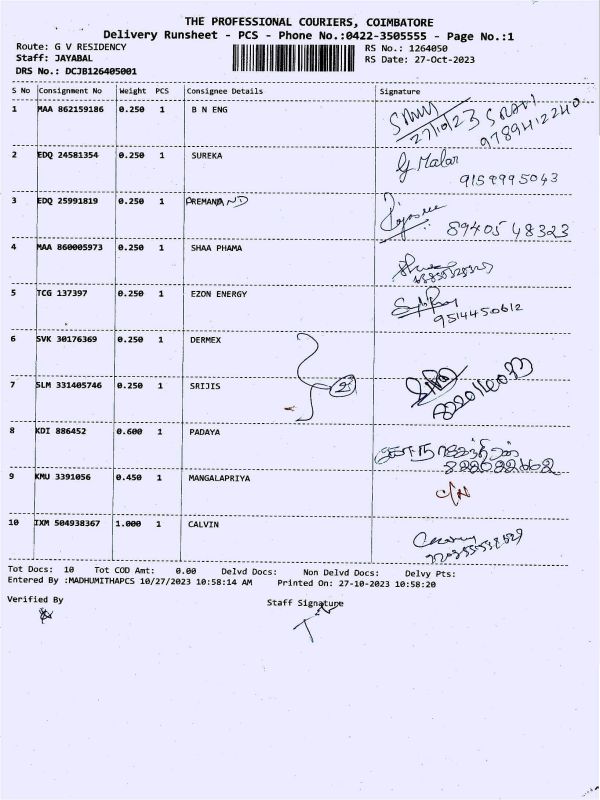 THE PROFESSIONAL COURIERS, COIMBATORE
Delivery Runsheet - PCS - Phone No.:0422-3505555 - Page No.:1
Route: G V RESIDENCY RS No.: 1264050
Staff: JAYABAL RS Date: 27-Oct-2023
DRS No.: DCJB126405001
S No Consignment No Weight PCS Consignee Details Signature
1 MAA 862159186 0.250 1 B N ENG
27/10/23 SRAVI
9789412240
2 EDQ 24581354 0.250 1 SUREKA G Malar
9159995043
3 EDQ 25991819 0.250 1 PREMANAND
89405 48323
4 MAA 860005973 0.250 1 SHAA PHAMA
5 TCG 137397 0.250 1 EZON ENERGY
9514450612
6 SVK 30176369 0.250 1 DERMEX
7 SLM 331405746 0.250 1 SRIJIS 2
8 KDI 886452 0.600 1 PADAYA
9 KMU 3391056 0.450 1 MANGALAPRIYA C/N
10 IXM 504938367 1.000 1 CALVIN
Tot Docs: 10 Tot COD Amt: 0.00 Delvd Docs: Non Delvd Docs: Delvy Pts:
Entered By :MADHUMITHAPCS 10/27/2023 10:58:14 AM Printed On: 27-10-2023 10:58:20
Verified By Staff Signature